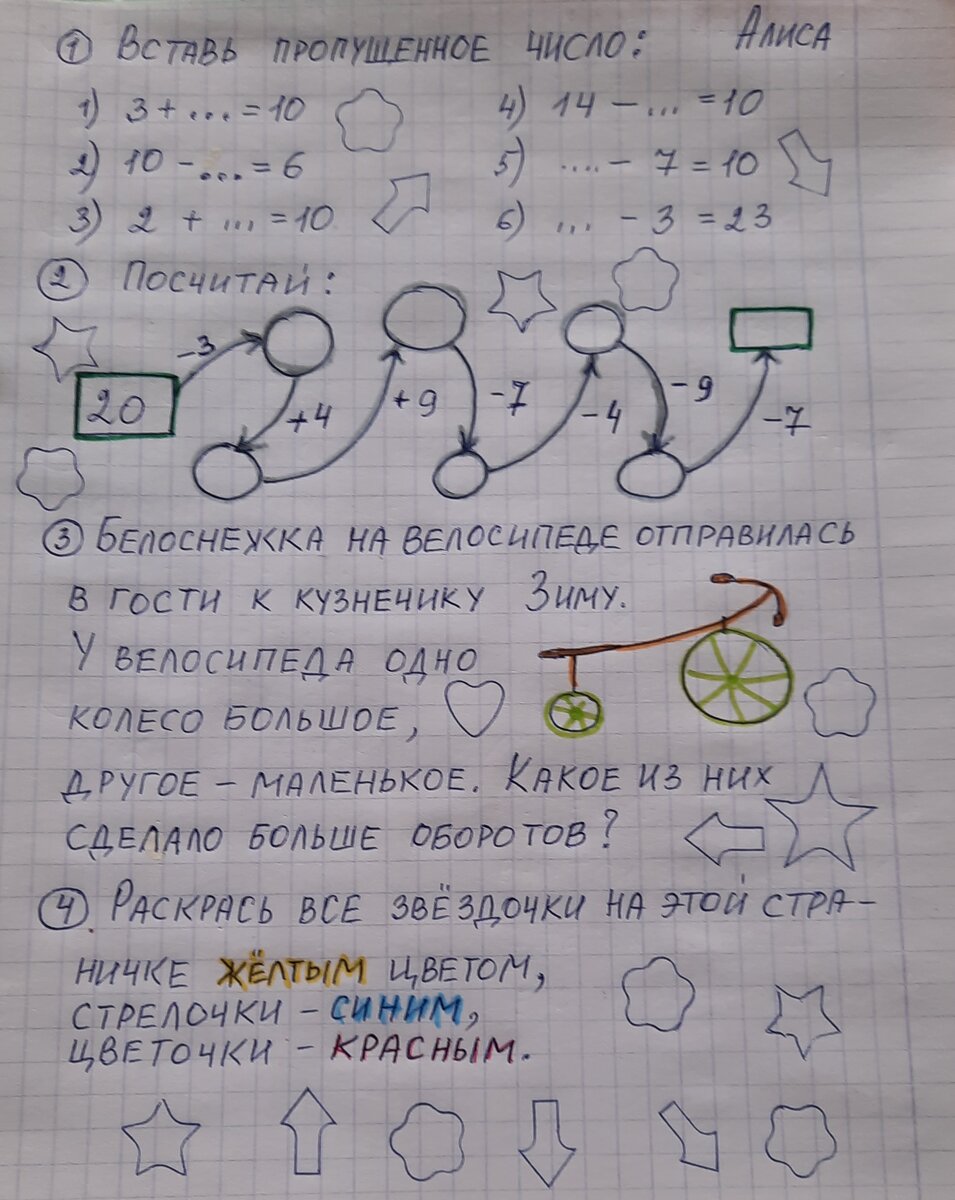 ① Вставь пропущенное число: Алиса
1) 3 + ... = 10 4) 14 - ... = 10
2) 10 - ... = 6 5) .... - 7 = 10
3) 2 + ... = 10 6) ... - 3 = 23
② Посчитай:
20 -3 +4 +9 -7 -4 -9 -7
③ Белоснежка на велосипеде отправилась
в гости к кузнечику Зиму.
У велосипеда одно
колесо большое,
другое – маленькое. Какое из них
сделало больше оборотов?
④ Раскрась все звёздочки на этой стра-
ничке жёлтым цветом,
стрелочки – синим,
цветочки – красным.